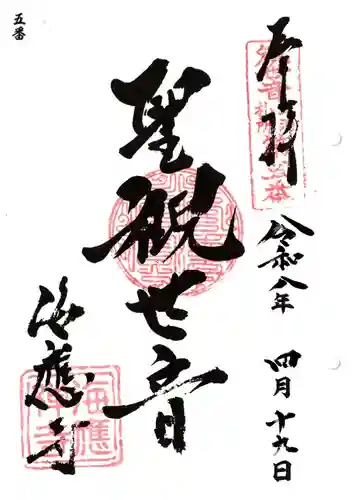 五番
奉拝
令和八年
四月十九日
聖観世音
海應寺